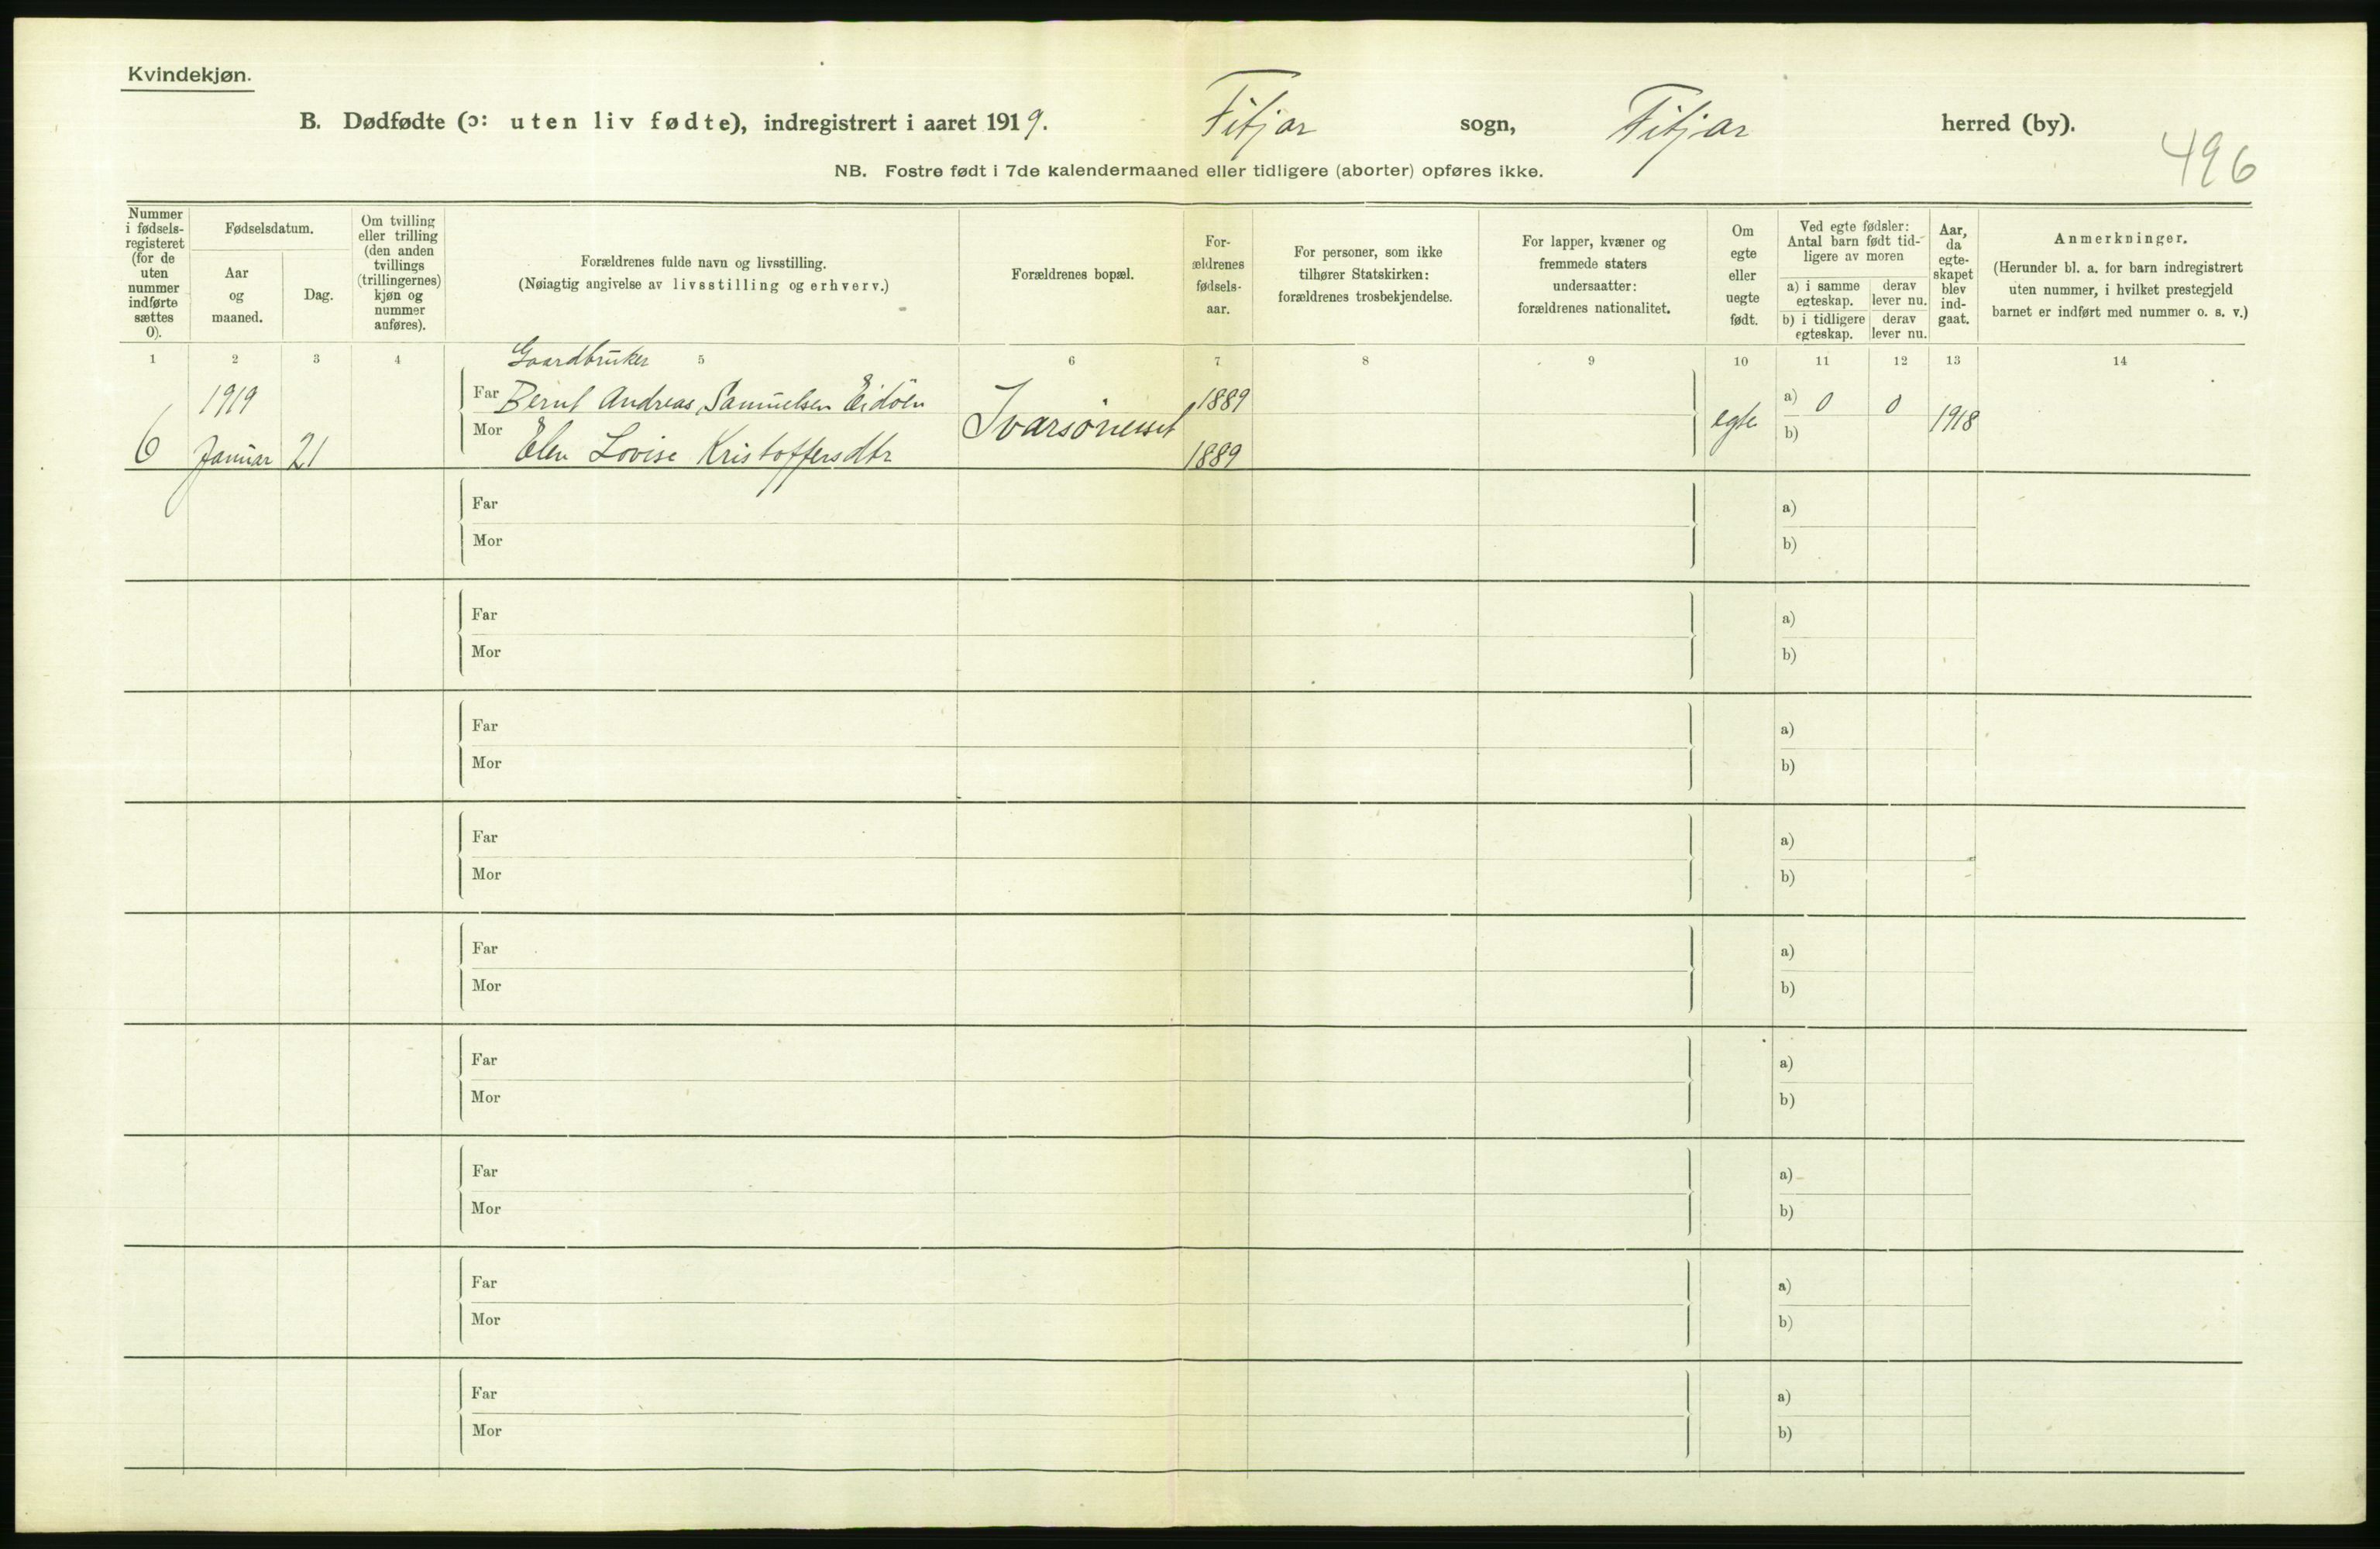 Kvindekjøn.
B. Dødfødte (ɔ: uten liv fødte), indregistrert i aaret 1919. Fitjar sogn, Fitjar herred (by).
496
NB. Fostre født i 7de kalendermaaned eller tidligere (aborter) opføres ikke.
Nummer
i fødsels-
registeret
(for de
uten
nummer
indførte
sættes
0).
Fødselsdatum.
Aar
og
maaned.
Dag.
Om tvilling
eller trilling
(den anden
tvillings
(trillingernes)
kjøn og
nummer
anføres).
Forældrenes fulde navn og livsstilling.
(Nøiagtig angivelse av livsstilling og erhverv.)
Forældrenes bopæl.
For-
ældrenes
fødsels-
aar.
For personer, som ikke
tilhører Statskirken:
forældrenes trosbekjendelse.
For lapper, kvæner og
fremmede staters
undersaatter:
forældrenes nationalitet.
Om
egte
eller
uegte
født.
Ved egte fødsler:
Antal barn født tid-
ligere av moren
a) i samme
egteskap.
derav
lever nu.
b) i tidligere
egteskap.
derav
lever nu.
Aar,
da
egte-
skapet
blev
ind-
gaat.
Anmerkninger.
(Herunder bl. a. for barn indregistrert
uten nummer, i hvilket prestegjeld
barnet er indført med nummer o. s. v.)
1 2 3 4 5 6 7 8 9 10 11 12 13 14
Gaardbruker
1919 Far Bernt Andreas Samuelsen Eidöen 1889 a) 0 0
6 Januar 21 Mor Elen Lovise Kristoffersdtr 1889 egte b) 1918
Far a)
Mor b)
Far a)
Mor b)
Far a)
Mor b)
Far a)
Mor b)
Far a)
Mor b)
Far a)
Mor b)
Far a)
Mor b)
Far a)
Mor b)
Far a)
Mor b)